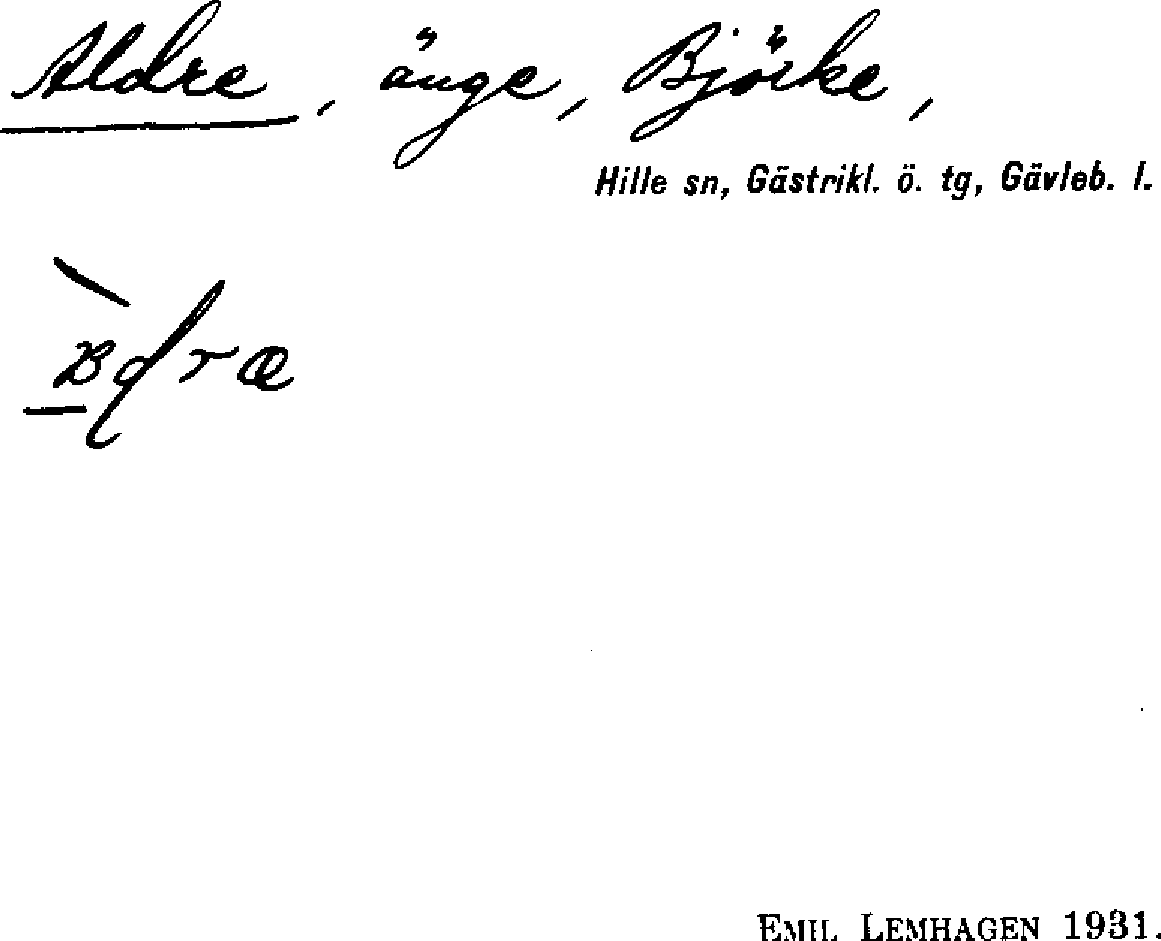 Aldre, änge, Björke,
Hille sn, Gästrikl. ö. tg, Gävleb. l.
EMIL LEMHAGEN 1931.